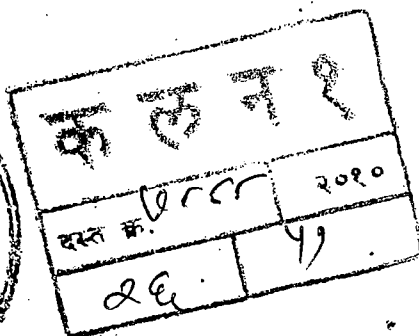 क ल न १
दस्त क्र. ४८८८ २०१०
२६ ५१